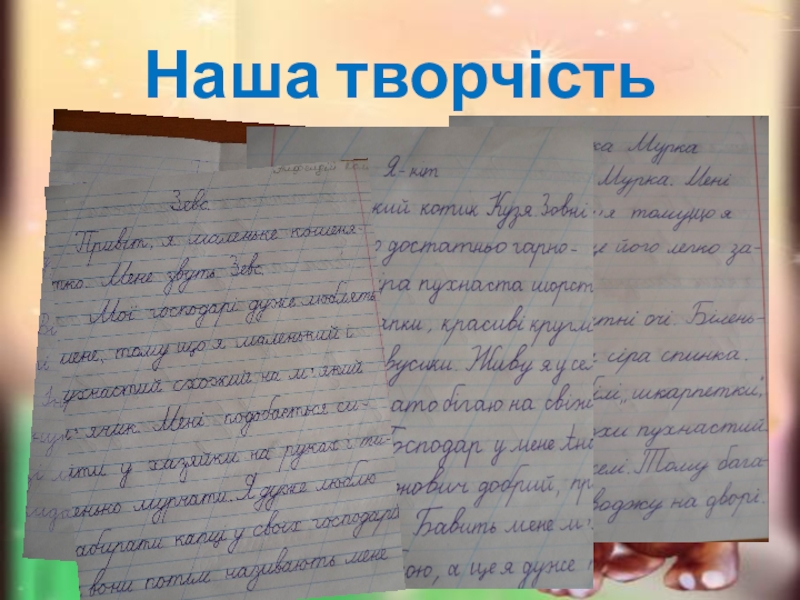 Наша творчість
Зевс.
Привіт, я маленьке кошеня-
тко. Мене звуть Зевс.
Мої господарі дуже люблять
мене, тому що я маленький і
пухнастий схожий на м'який
м'ячик. Мені подобається си-
діти у хазяйки на руках і ти-
хенько мурчати. Я дуже люблю
забирати капці у своїх господарів
вони потім називають мене
Я - кіт
кий котик Кузя. Зовні
достатньо гарно-
пухнаста шорст
красиві круглі
вусики. Живу я у се
бігаю на свіж
господар у мене
добрий, пр
Бавить мене м
ою, а ще я дуже
ка Мурка
Мурка. Мені
тому що я
це його легко за-
очі. Білень-
сіра спинка.
„шкарпетки",
пухнастий
селі. Тому бага-
воджу на дворі.